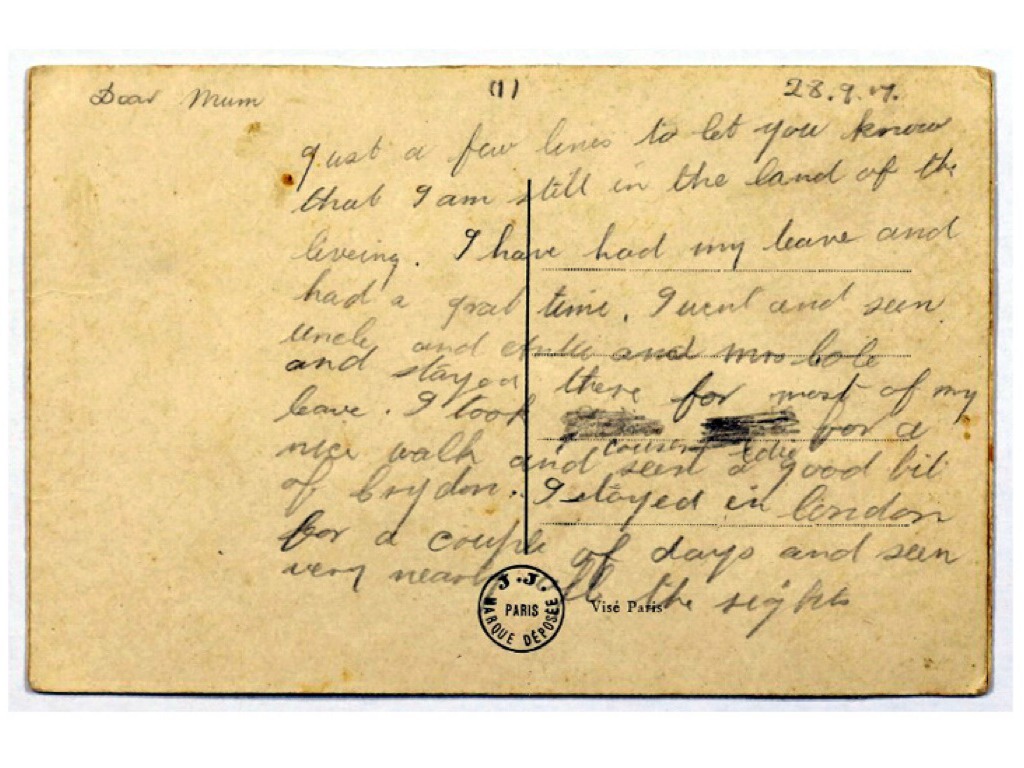 Dear Mum (1) 28.9.17.
Just a few lines to let you know
that I am still in the land of the
liveing. I have had my leave and
had a grat time. I went and seen
uncle and and Mrs Cole
and stayed there for most of my
leave. I took for a
cousin Edie
nice walk and seen a good bit
of Crydon. I stayed in London
for a couple of days and seen
very near all the sights
J.J.
PARIS
MARQUE DÉPOSÉE
Visé Paris